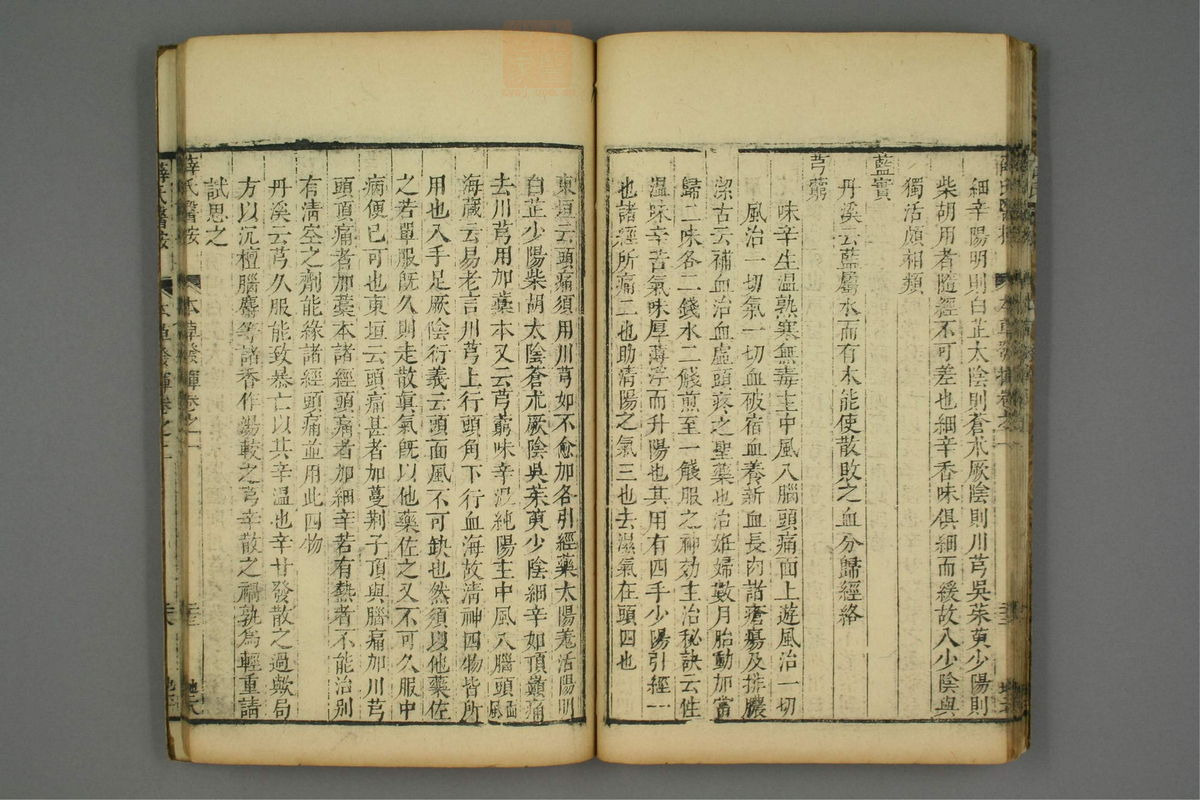 細辛陽明則白芷太陰則蒼朮厥陰則川芎吳茱萸少陽則
柴胡用者隨經不可差也細辛香味俱細而緩故入少陰與
獨活頗相類
藍實
丹溪云藍屬水而有木能使散敗之血分歸經絡
芎藭
味辛生溫熟寒無毒主中風入腦頭痛面上遊風治一切
風治一切氣一切血破宿血養新血長肉諸瘡瘍及排膿
潔古云補血治血虛頭疼之聖藥也治姙婦數月胎動加當
歸二味各二錢水二餞煎至一餞服之神効主治秘訣云性
溫味辛苦氣味厚薄浮而升陽也其用有四手少陽引經一
也諸經所痛二也助清陽之氣三也去濕氣在頭四也
東垣云頭痛須用川芎如不愈加各引經藥太陽羗活陽明
白芷少陽柴胡太陰蒼朮厥陰吳茱萸少陰細辛如頂巔痛
去川芎用加藁本又云芎藭味辛溫純陽主中風入腦頭面風
海藏云易老言川芎上行頭角下行血海故淸神四物皆所
用也入手足厥陰衍義云頭面風不可缺也然須以他藥佐
之若單服既久則走散眞氣既以他藥佐之又不可久服中
病便已可也東垣云頭痛甚者加蔓荆子頂與腦痛加川芎
頭頂痛者加藁本諸經頭痛者加細辛若有熱者不能治別
有淸空之劑能緣諸經頭痛並用此四物
丹溪云芎久服能致暴亡以其辛溫也辛甘發散之過歟局
方以沉檀腦麝等諸香作湯較之芎辛散之禍孰爲輕重請
試思之
薛氏醫按
本草發揮卷之二